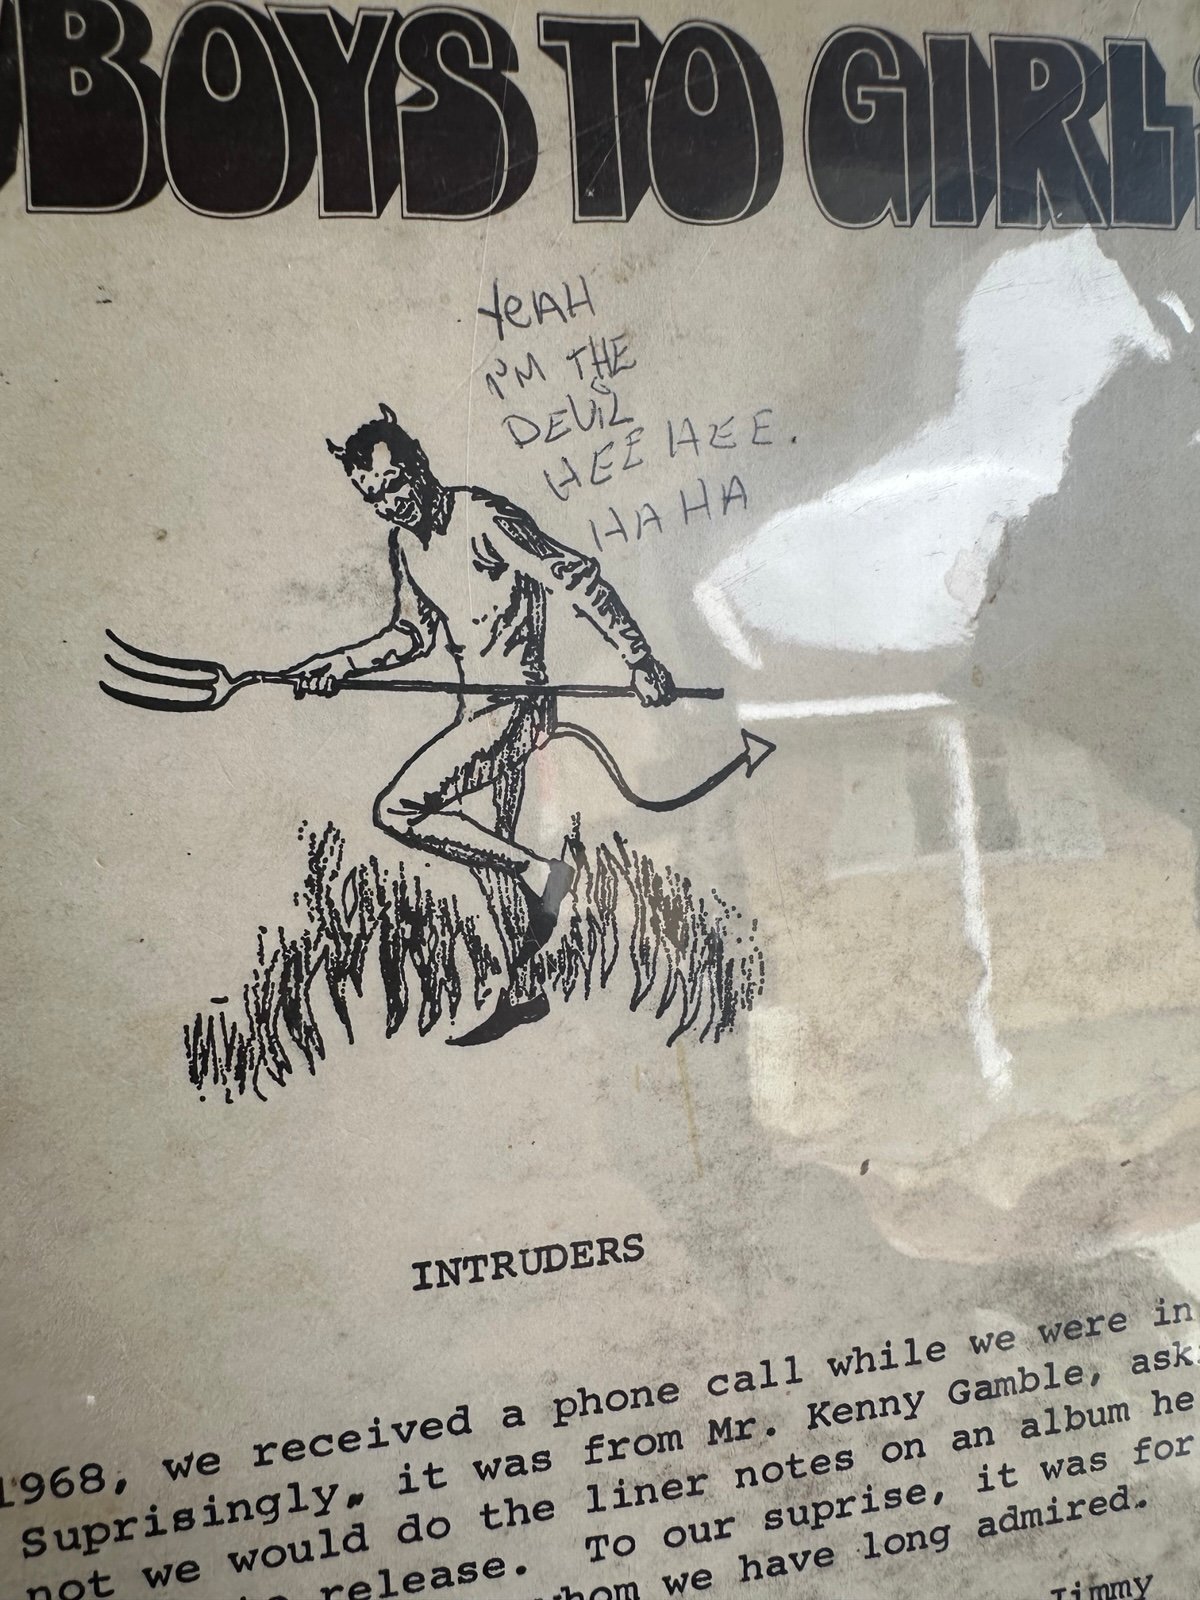 BOYS TO GIRL
YEAH
I'M THE
DEVIL
HEE HEE.
HA HA
INTRUDERS
1968, we received a phone call while we were in
Suprisingly, it was from Mr. Kenny Gamble, ask
not we would do the liner notes on an album he
release. To our suprise, it was for
whom we have long admired.
Jimmy